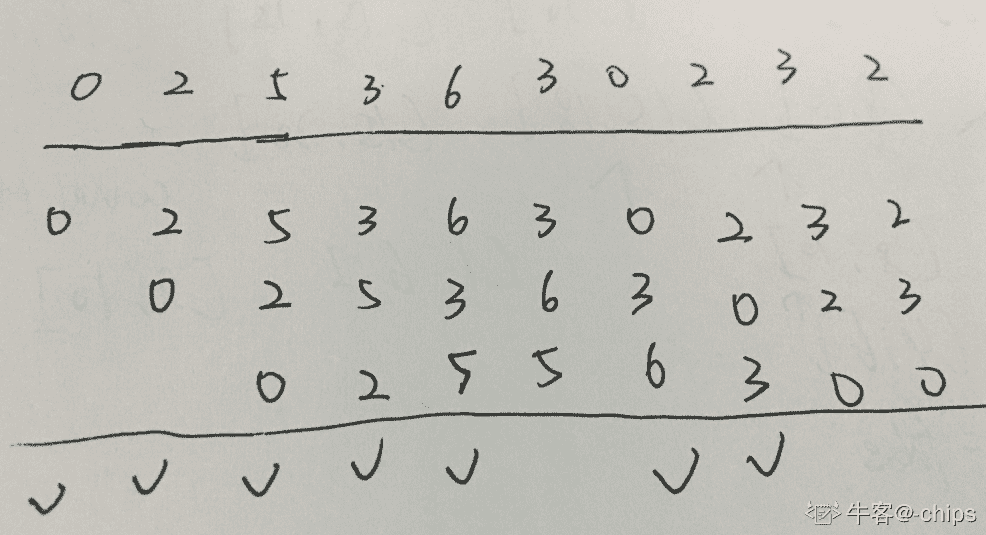 0 2 5 3 6 3 0 2 3 2
0 2 5 3 6 3 0 2 3 2
0 2 5 3 6 3 0 2 3
0 2 5 5 6 3 0 0
✓ ✓ ✓ ✓ ✓ ✓ ✓
牛客@-chips